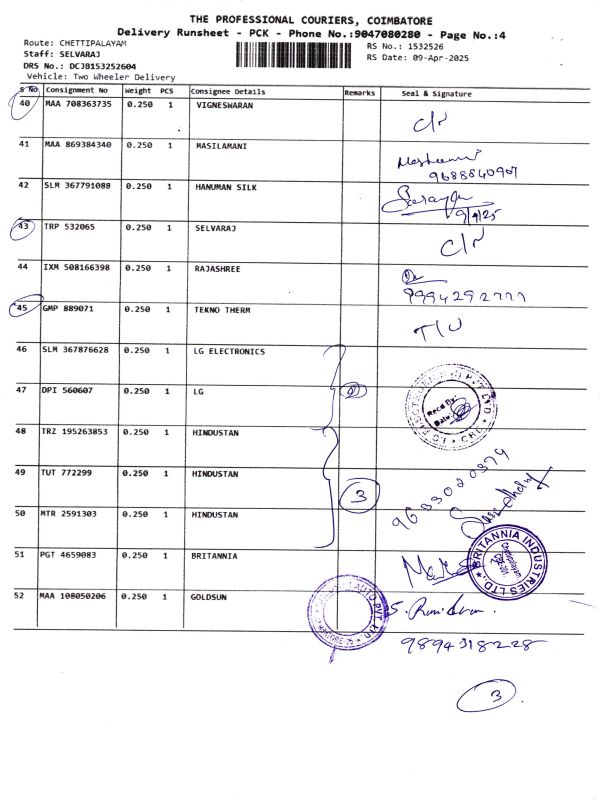 THE PROFESSIONAL COURIERS, COIMBATORE
Delivery Runsheet - PCK - Phone No.:9047080280 - Page No.:4
Route: CHETTIPALAYAM
RS No.: 1532526
Staff: SELVARAJ
RS Date: 09-Apr-2025
DRS No.: DCJB153252604
Vehicle: Two Wheeler Delivery
S No Consignment No Weight PCS Consignee Details Remarks Seal & Signature
40 MAA 708363735 0.250 1 VIGNESWARAN
41 MAA 869384340 0.250 1 MASILAMANI
9688840907
42 SLM 367791088 0.250 1 HANUMAN SILK
9/4/25
43 TRP 532065 0.250 1 SELVARAJ
44 IXM 508166398 0.250 1 RAJASHREE
9994292777
45 GMP 889071 0.250 1 TEKNO THERM
46 SLM 367876628 0.250 1 LG ELECTRONICS
47 DPI 560607 0.250 1 LG
Recd By:
Date:
48 TRZ 195263853 0.250 1 HINDUSTAN
49 TUT 772299 0.250 1 HINDUSTAN
3
9633020379
50 MTR 2591303 0.250 1 HINDUSTAN
51 PGT 4659083 0.250 1 BRITANNIA
BRITANNIA INDUSTRIES LTD.
52 MAA 108050206 0.250 1 GOLDSUN
9894318228
3